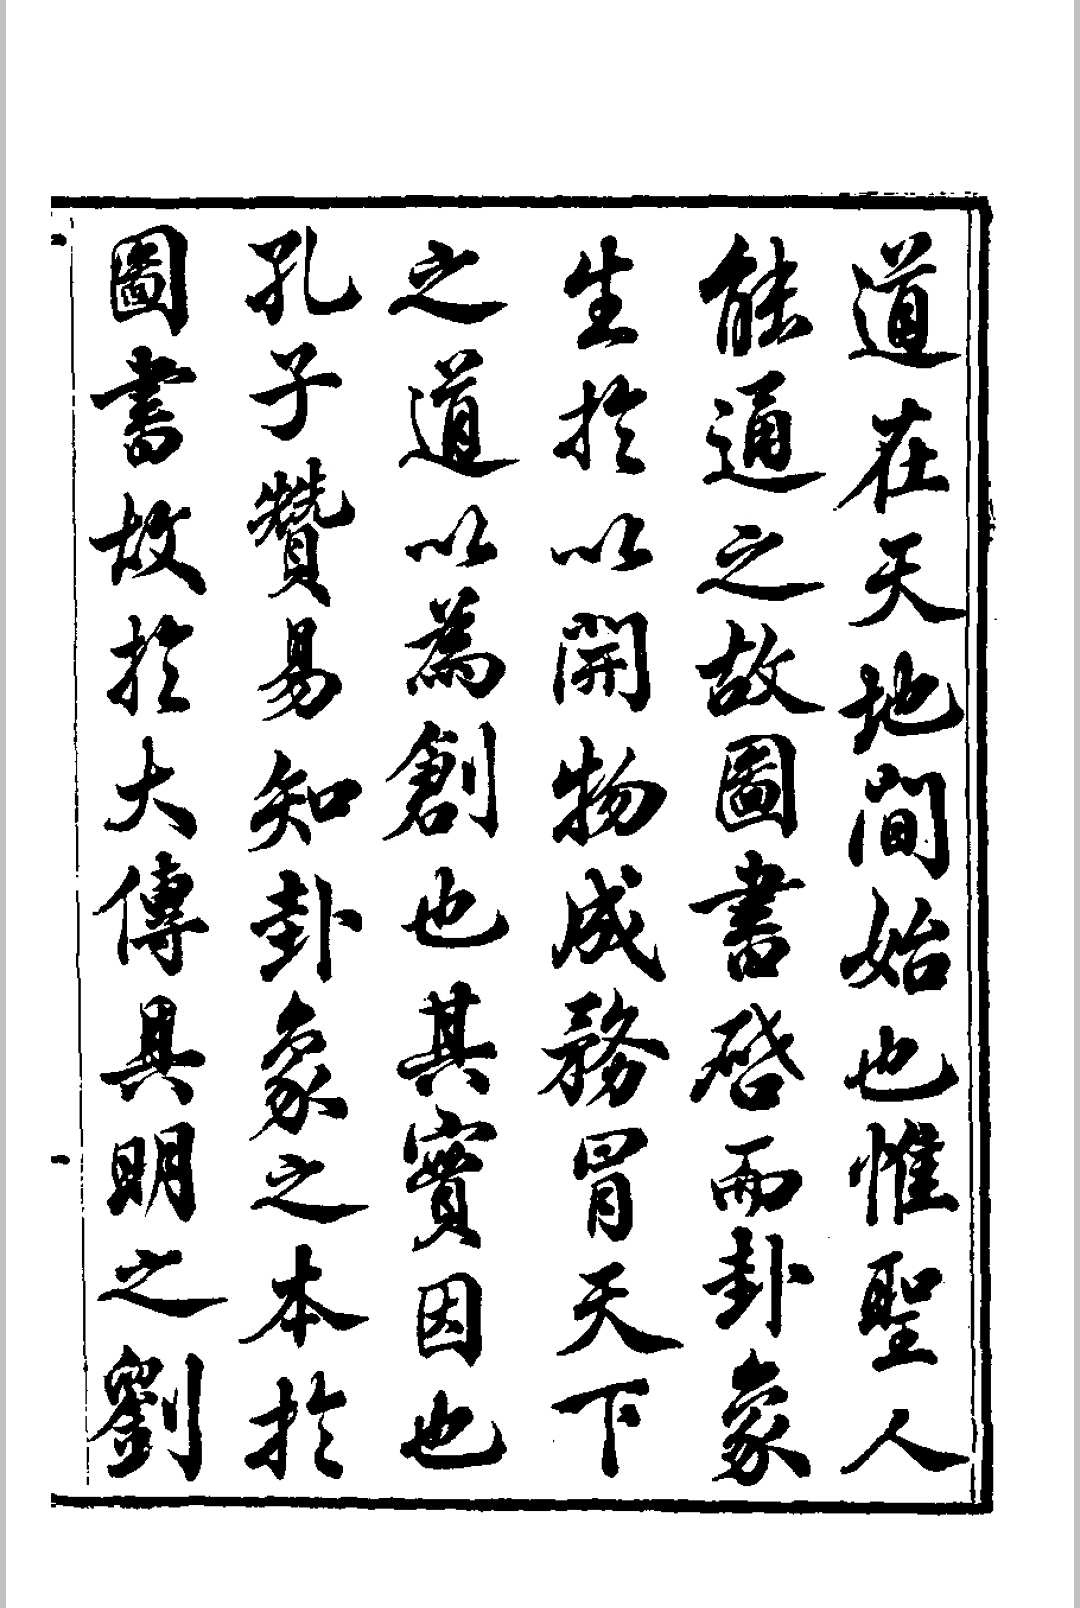 道在天地間始也惟聖人
能通之故圖書啓而卦象
生於以開物成務冐天下
之道以為創也其實因也
孔子贊易知卦象之本於
圖書故於大傳具明之劉